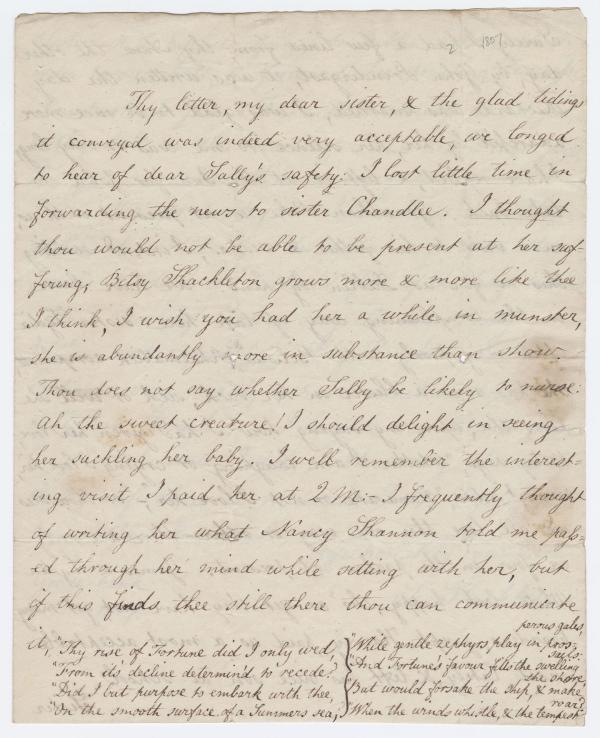 2 1807
Thy letter, my dear sister, & the glad tidings
it conveyed was indeed very acceptable, we longed
to hear of dear Sally's safety: I lost little time in
forwarding the news to sister Chandlee. I thought
thou would not be able to be present at her suf
fering, Bitsy Shackleton grows more & more like thee
I think, I wish you had her a while in munster,
she is abundantly more in substance than show.
Thou does not say whether Sally be likely to nurse:
Ah the sweet creature! I should delight in seeing
her suckling her baby. I well remember the interest=
ing visit I paid her at 2 M:- I frequently thought
of writing her what Nancy Shannon told me pass=
ed through her mind while sitting with her, but
if this finds thee still there thou can communicate
it, "Thy rise of Fortune did I only wed,
"From it's decline determin'd to recede?
"Did I but purpose to embark with thee,
"On the smooth surface of a Summers sea;
"While gentle zephyrs play in prosperous gales,
"And Fortune's favour fills the swelling sails:
"But would forsake the ship, & make the shore
"When the winds whistle, & the tempests roar?